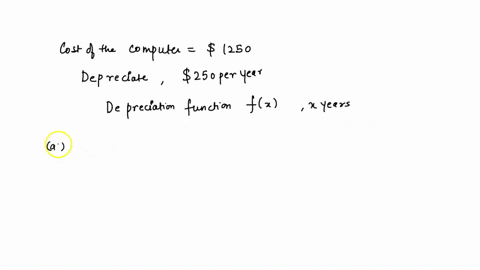 Cost of the computer = $ 1250
Depreciate , $250 per year
Depreciation function f(x) , x years
(a.)